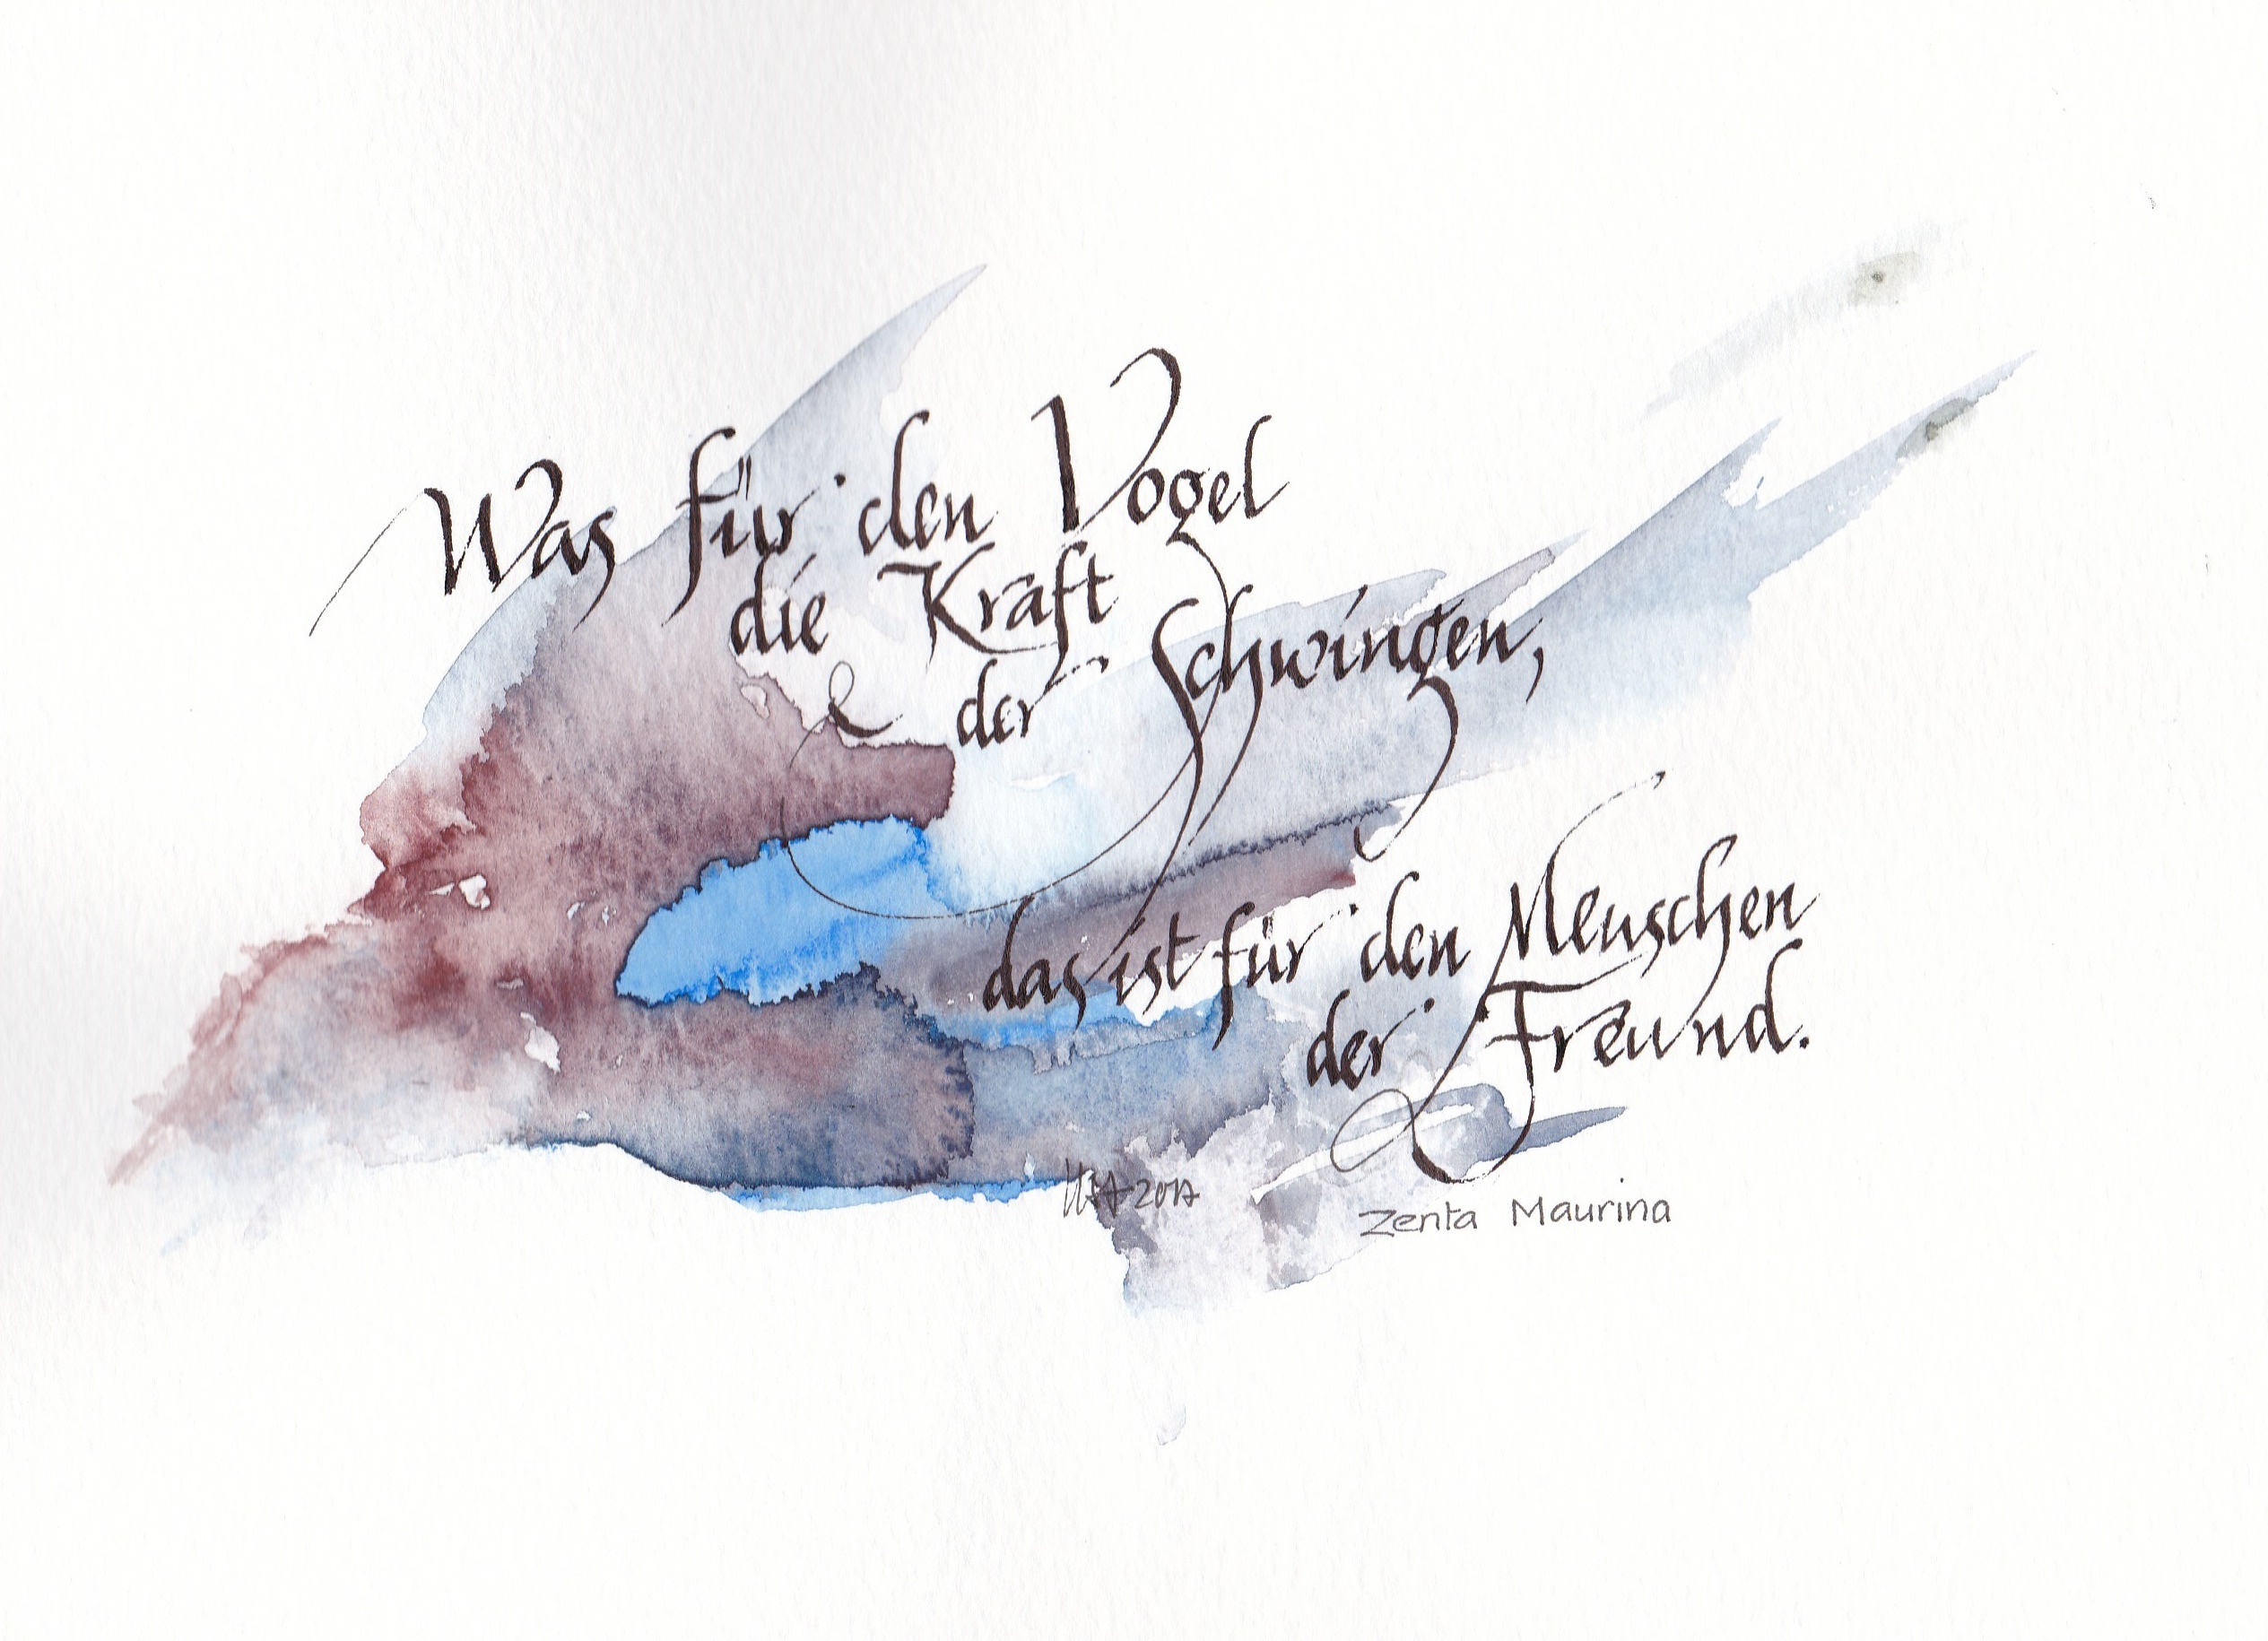 Was für den Vogel
die Kraft
der Schwingen,
das ist für den Menschen
der Freund.
2017
Zenta Maurina